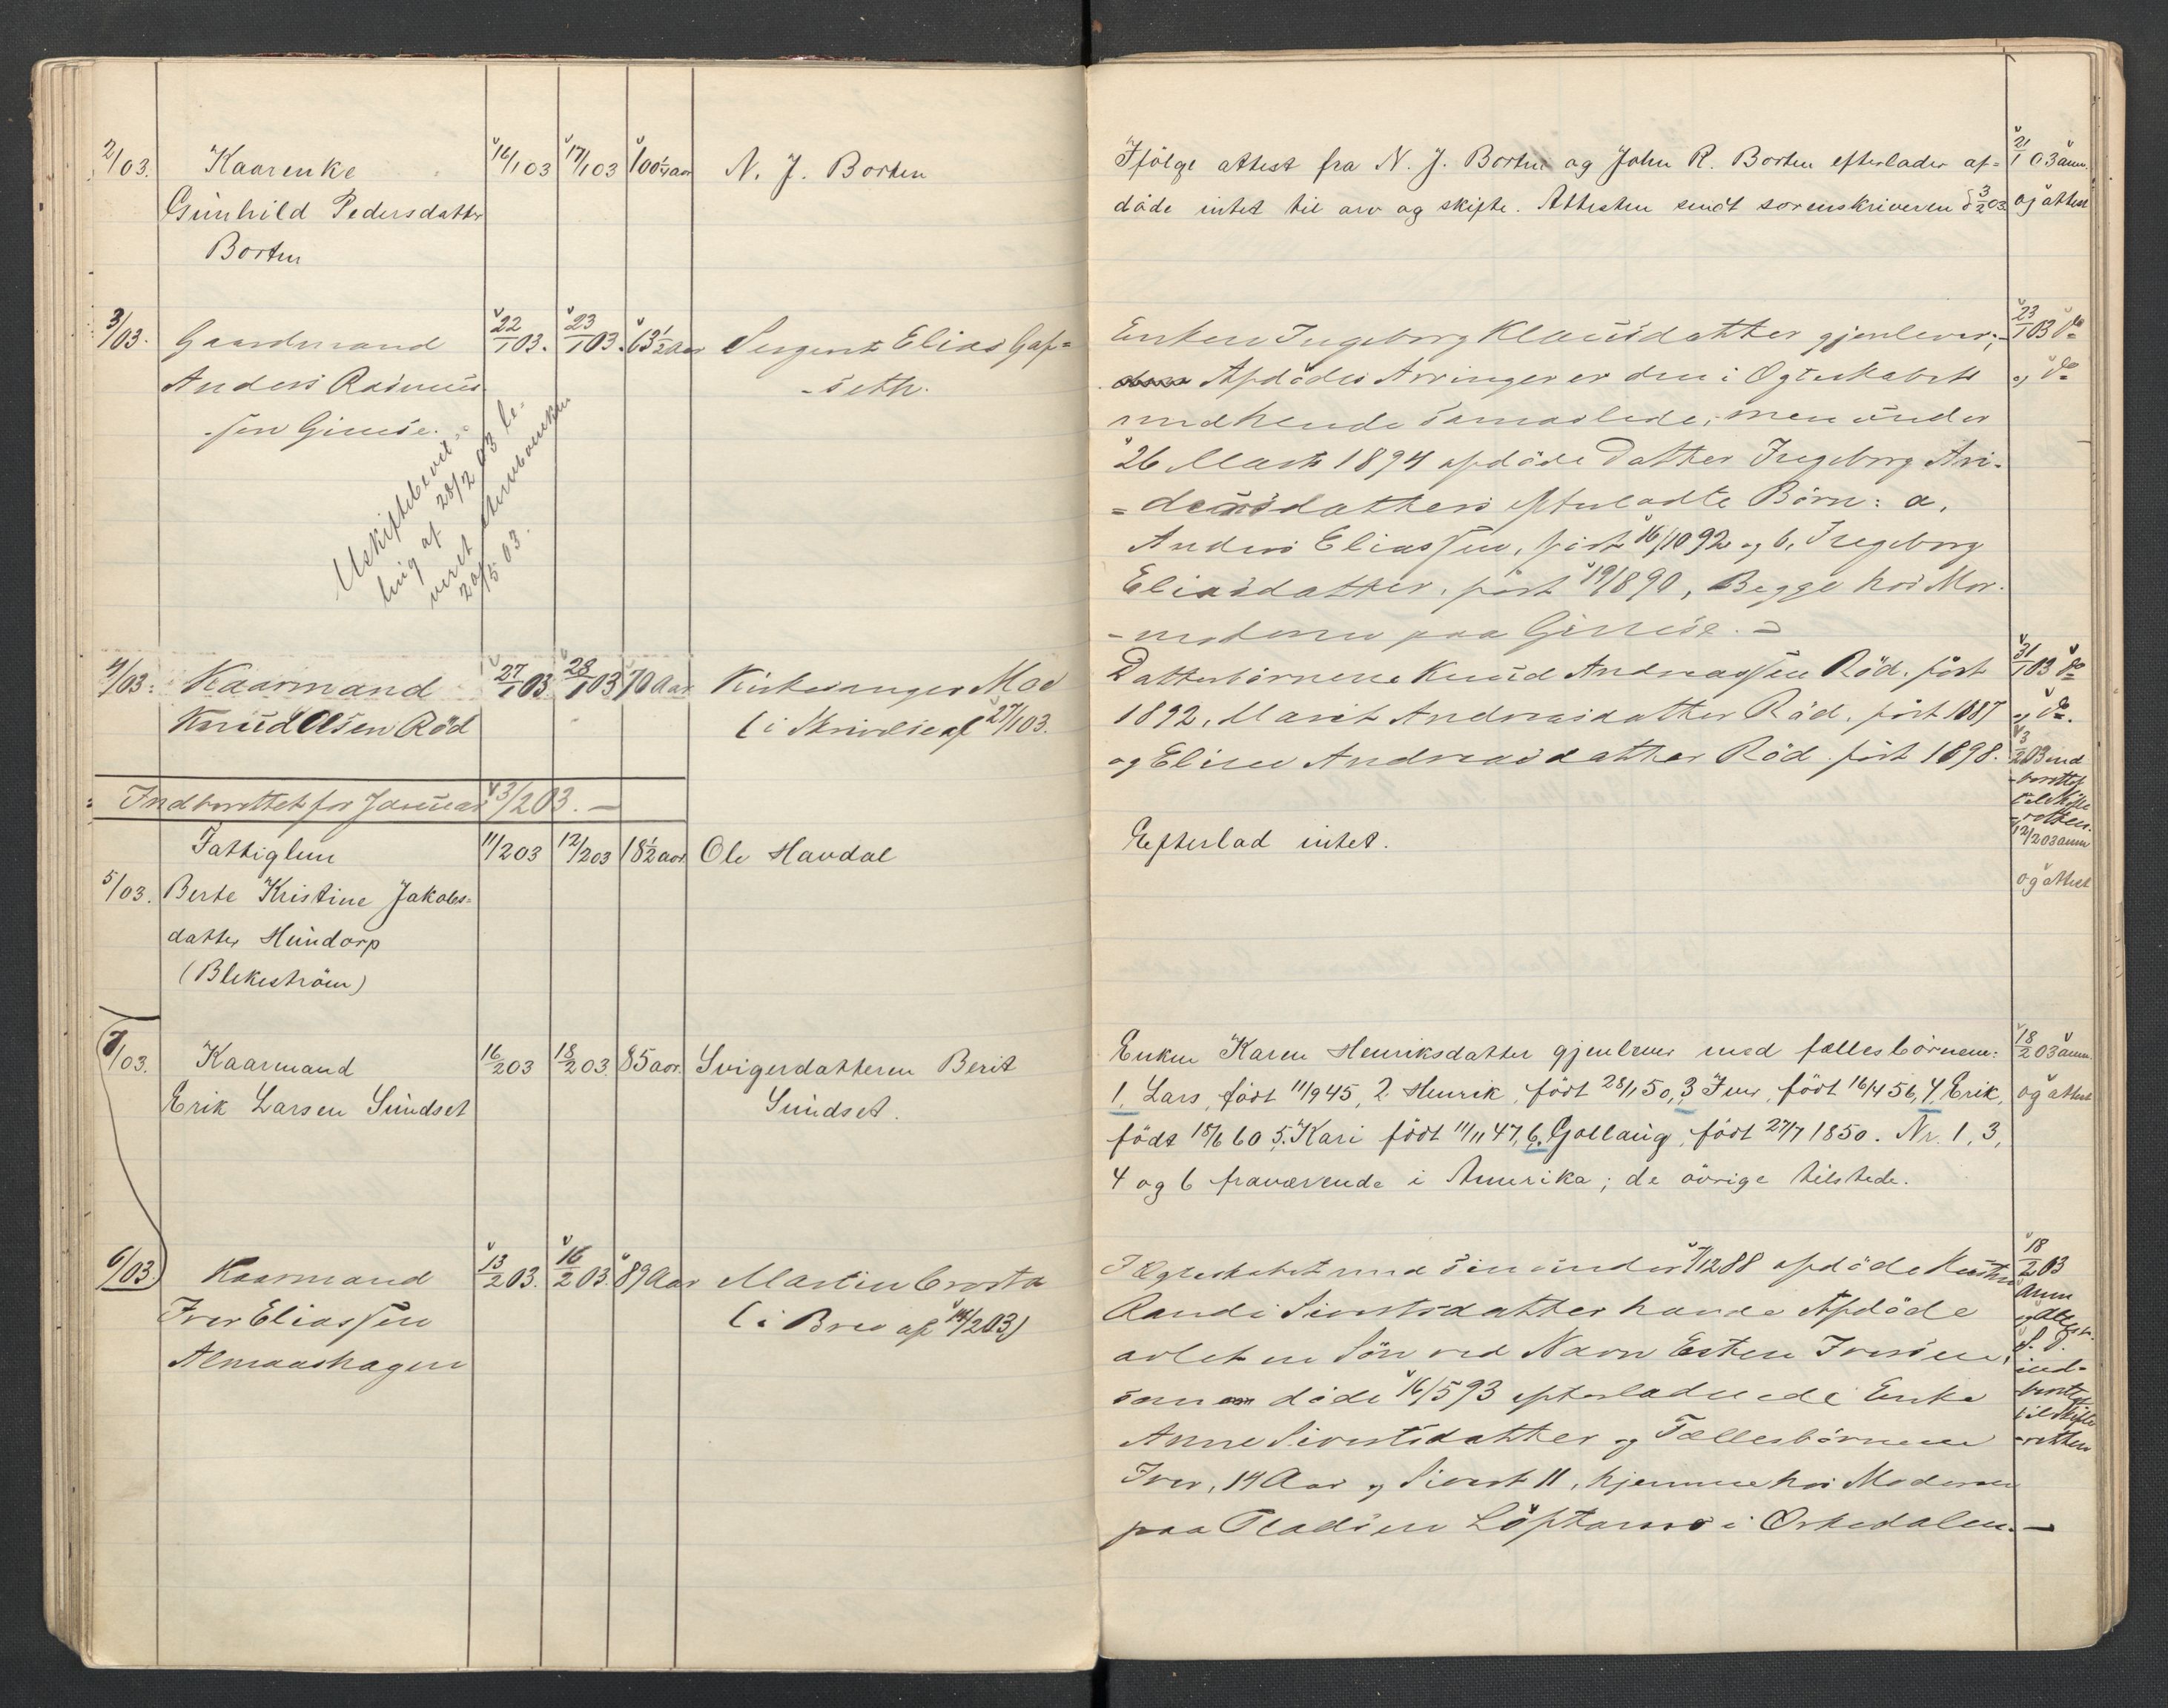 2/03.
Kaarenke
Gunhild Pedersdatter
Borten
16/1 03
17/1 03
100 1/4 aar
N. J. Borten
Ifölge attest fra N. J. Borten og John R. Borten efterlader af=
döde intet til arv og skifte. Attesten sendt sorenskriveren d 3/2 03.
21/1 03 anm.
og attest
3/03.
Gaardmand
Anders Rasmus-
-sen Gimse.
22/1 03.
23/1 03.
63 1/2 Aar
Sergent Elias Gaf=
-seth.
Uskiftebevil-
ling af 28/2 03 le-
veret Enken
20/5 03.
Enken Ingeborg Klausdatter gjenlever;
Afdödes Arvinger er den i Ægteskabets
med hende samavlede, men under
26 Marts 1894 afdöde Datter Ingeborg An-
=dersdatters efterladte Börn: a,
Anders Eliassen, född 16/10 92 og b, Ingeborg
Eliasdatter, född 19/8 90, Begge hos Mor-
-moderen paa Gimse. -
23/1 03 do
og do
4/03.
Kaarmand
Knud Olsen Röd
27/1 03
28/1 03
70 Aar
Kirkesanger Moe
(i Skrivelse af 27/1 03.
Datterbörnene Knud Andreassen Röd, född
1892, Marit Andreasdatter Röd, född 1887
og Elise Andreasdatter Röd född 1898.
31/1 03 do
og do.
3/2 03 ind-
berettet
til Skifte
-retten.
Indberettet for Januar 3/2 03. -
5/03.
Fattiglem
Berte Kristine Jakobs=
datter Hundorp
(Blekeström)
11/2 03
12/2 03
18 1/2 aar
Ole Havdal
Efterlod intet.
12/2 03 anm
og attest
7/03.
Kaarmand
Erik Larsen Sundset
16/2 03
18/2 03.
85 aar.
Svigerdatteren Berit
Sundset.
Enken Karen Henriksdatter gjenlever med fællesbörnene:
1, Lars, född 11/9 45, 2 Henrik, född 28/1 50, 3 Iver, född 16/4 56, 4, Erik,
född 18/6 60 5. Kari född 11/11 47, 6. Gollaug, född 27/7 1850. Nr. 1, 3,
4 og 6 fraværende i Amerika; de övrige tilstede.
18/2 03 anm.
og attest
6/03
Kaarmand
Iver Eliassen
Almaashagen
13/2 03.
16/2 03.
89 Aar
Martin Crosta
(i Brev af 14/2 03)
I Ægteskabet med sin under 7/12 88 afdöde Hustru
Randi Sivertsdatter havde Afdöde
avlet en Sön ved Navn Esten Iversen,
som döde 16/5 93 efterladende Enke
Anne Sivertsdatter og Fællesbörnene
Iver, 14 Aar og Sivert 11, hjemme hos Moderen
paa Pladsen Löftamo i Orkedalen. -
18/2 03
Anm
og Attest.
S. D.
ind-
berettet
til Skifte
-retten